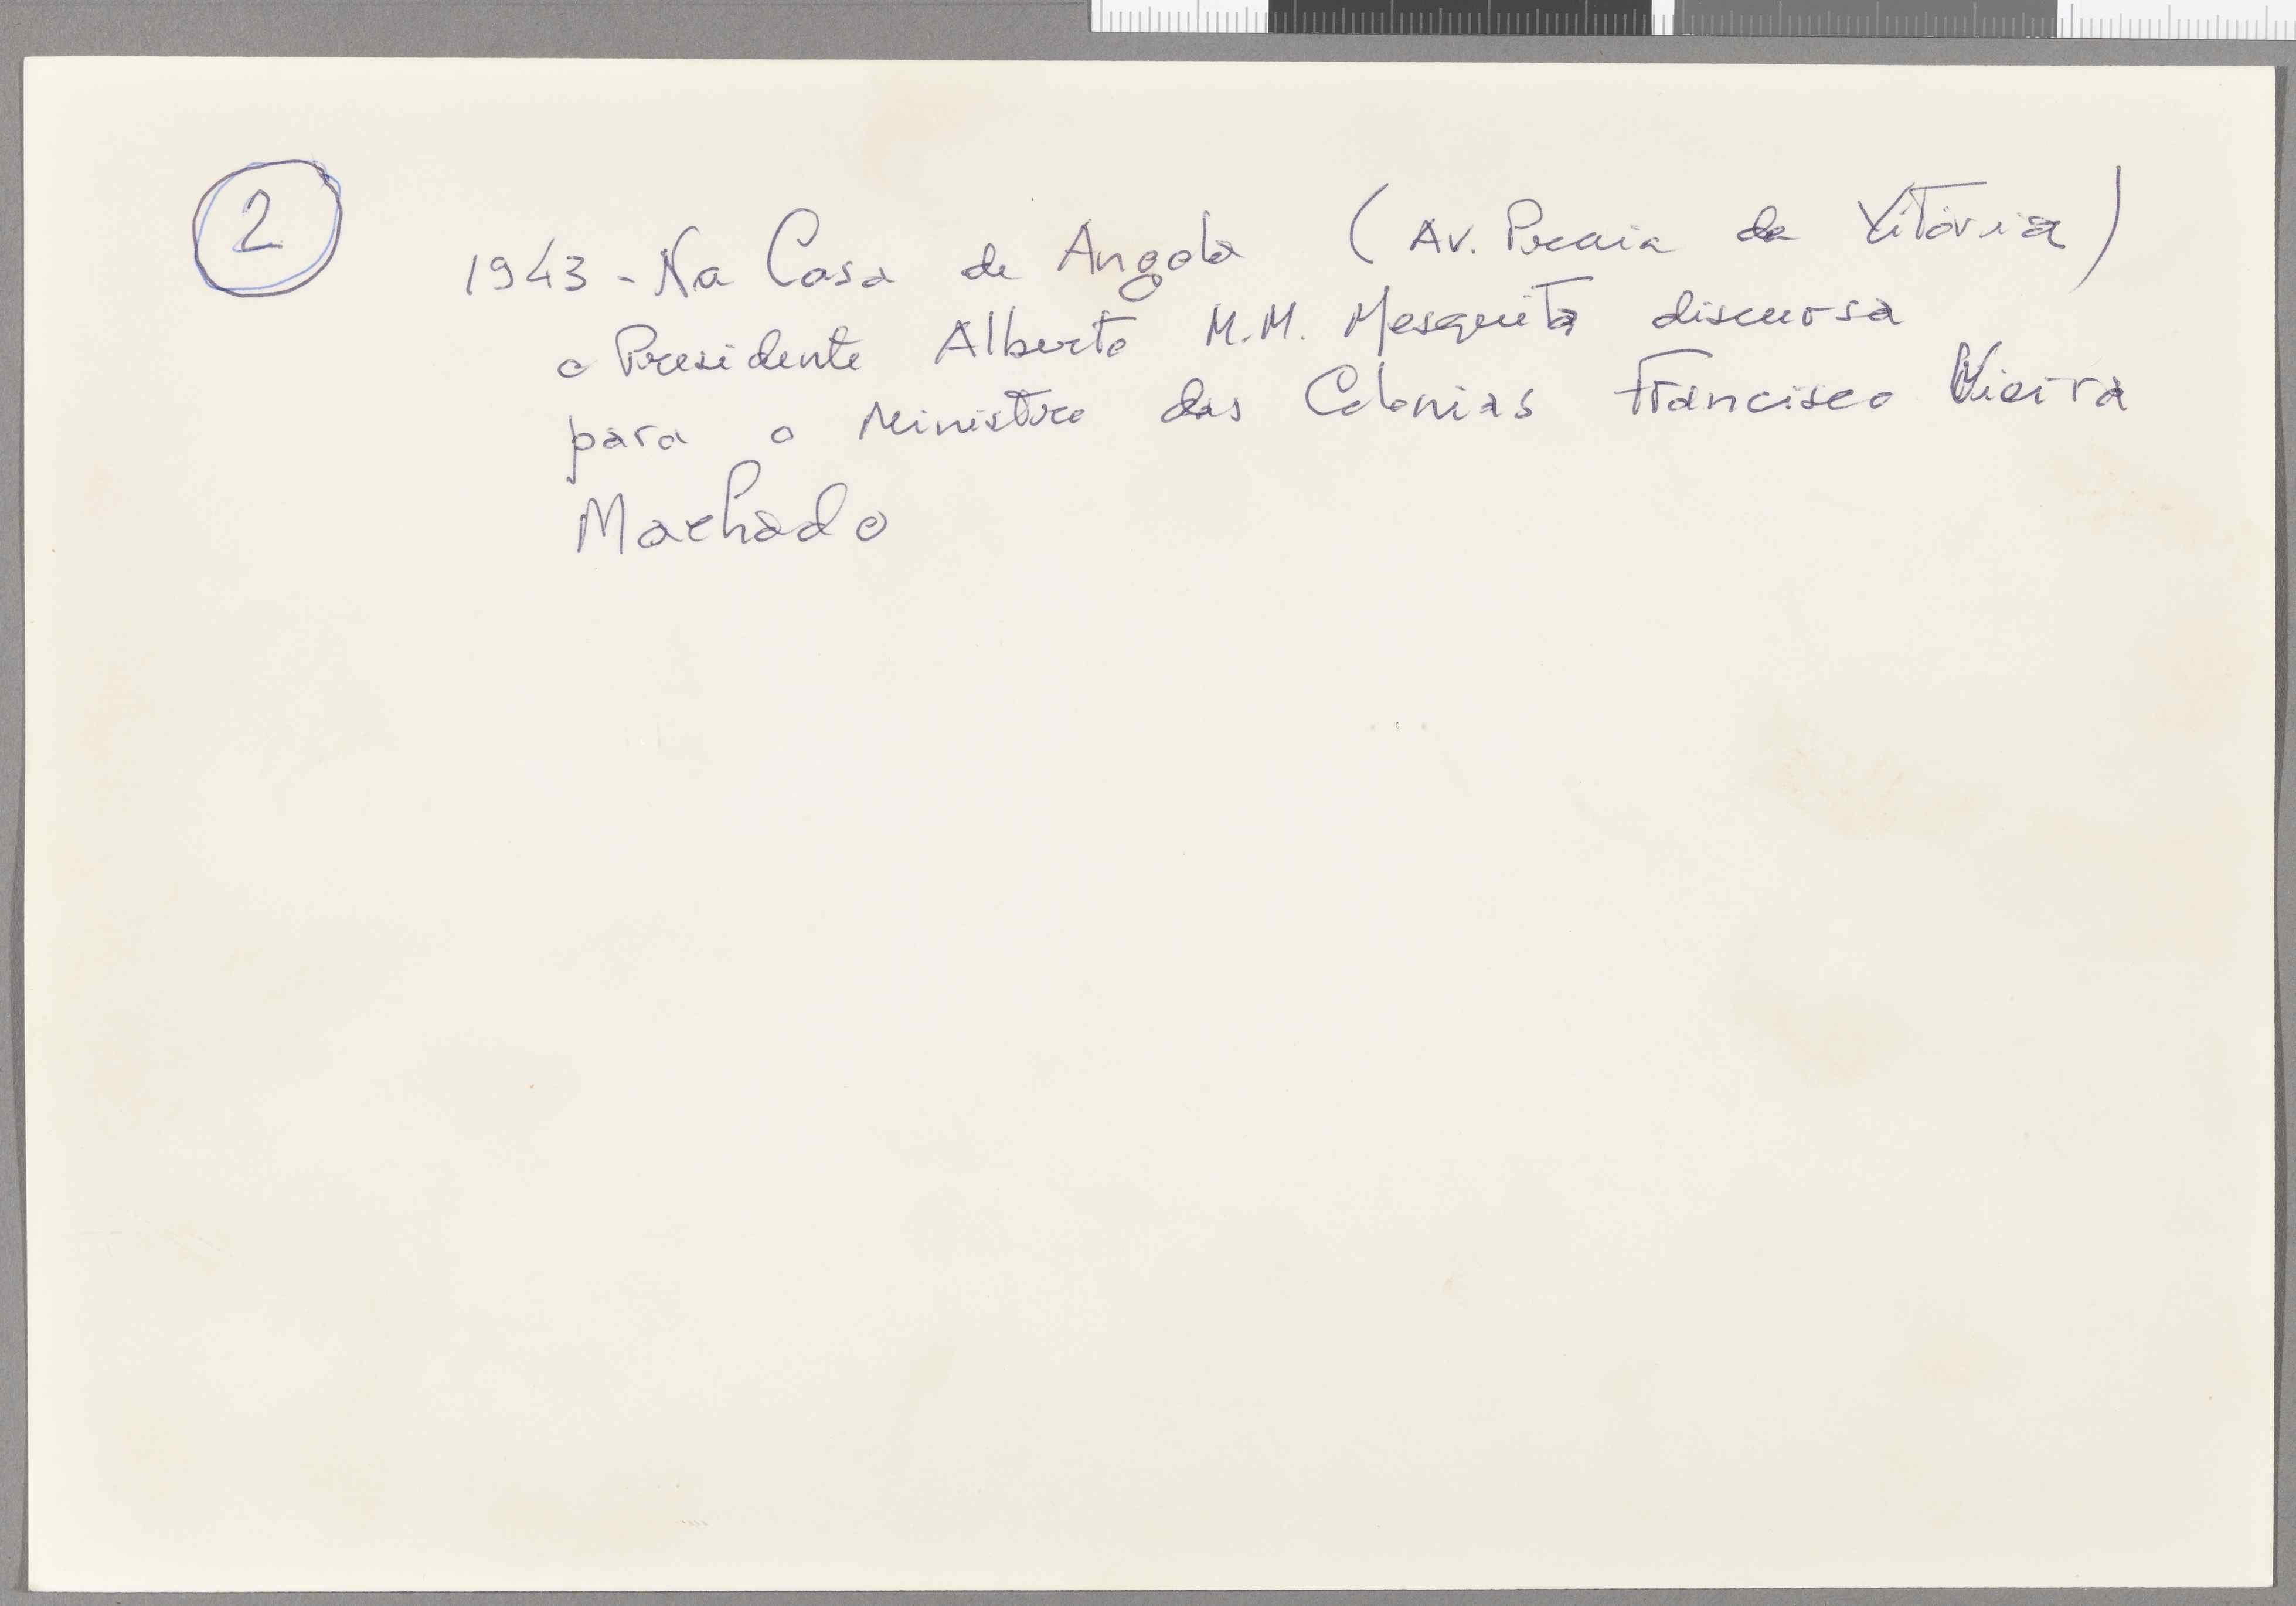 2
1943 - Na Casa de Angola (Av. Praia da Vitória)
o Presidente Alberto M.M. Mesquita discursa
para o Ministro das Colonias Francisco Vieira
Machado